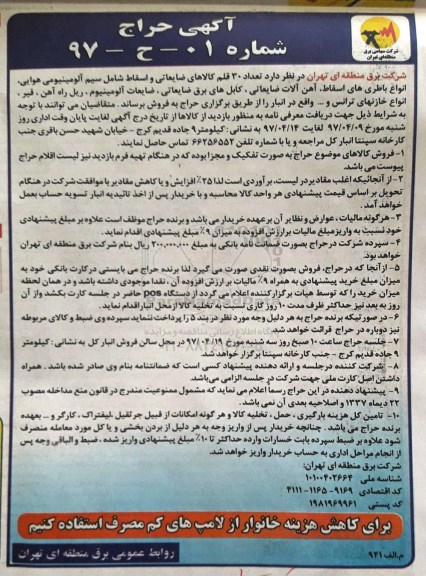 آگهی حراج
شماره ۰۱-ح-۹۷
شرکت سهامی برق
منطقه‌ای تهران
شرکت برق منطقه ای تهران در نظر دارد تعداد ۳۰ قلم کالاهای ضایعاتی و اسقاط شامل سیم آلومینیومی هوایی،
انواع باطری های اسقاط، آهن آلات ضایعاتی، کابل های برق ضایعاتی، ضایعات آلومینیوم، ریل راه آهن، قیر،
انواع خازنهای ترانس و ... واقع در انبار را از طریق برگزاری حراج به فروش برساند. متقاضیان می توانند با توجه
به شرایط ذیل جهت دریافت معرفی نامه به منظور بازدید از کالاها از تاریخ درج آگهی لغایت پایان وقت اداری روز
شنبه مورخ ۹۷/۰۴/۰۹ لغایت ۹۷/۰۴/۱۴ به نشانی: کیلومتر ۹ جاده قدیم کرج - خیابان شهید حسن باقری جنب
کارخانه سپنتا انبار کل مراجعه و یا با شماره تلفن ۶۶۲۵۶۵۵۲ تماس حاصل نمایند.
۱- فروش کالاهای موضوع حراج به صورت تفکیک و مجزا بوده که در هنگام تهیه فرم بازدید نیز لیست اقلام حراج
پیوست می باشد.
۲- از آنجائیکه اغلب مقادیر در لیست، برآوردی است لذا ۲۵٪ افزایش و یا کاهش مقادیر با موافقت شرکت در هنگام
تحویل بر اساس قیمت پیشنهادی هر واحد کالا محاسبه و با خریدار پس از اخذ تائیدیه انبار تسویه حساب بعمل
خواهد آمد.
۳- هرگونه مالیات، عوارض و نظایر آن بر عهده خریدار می باشد و برنده حراج موظف است علاوه بر مبلغ پیشنهادی
خود نسبت به واریز مبلغ مالیات بر ارزش افزوده به میزان ۹٪ مبلغ پیشنهادی اقدام نماید.
۴- سپرده شرکت در حراج بصورت ضمانت نامه بانکی به مبلغ ۲۰۰,۰۰۰,۰۰۰ ریال بنام شرکت برق منطقه ای تهران
خواهد بود.
۵- از آنجا که در حراج، فروش بصورت نقدی صورت می گیرد لذا برنده حراج می بایستی در کارت بانکی خود به
میزان مبلغ خرید پیشنهادی به همراه ۹٪ مالیات بر ارزش افزوده آن، نقدا موجودی داشته باشد و در همان لحظه
میزان خرید را که توسط هیات برگزارکننده اعلام می گردد از دستگاه pos حاضر در جلسه کارت بکشد و از آن
روز به بعد نیز حداکثر ظرف مدت ۱۰ روز کاری نسبت به تخلیه کالا از محل انبار اقدام نماید.
۶- در صورتیکه برنده حراج به هر دلیل وجه مورد نظر در بند ۵ را پرداخت ننماید سپرده وی ضبط و کالای مربوطه
نیز دوباره در حراج قرائت خواهد شد.
۷- جلسه حراج ساعت ۱۰ صبح روز سه شنبه مورخ ۹۷/۰۴/۱۹ در محل سالن فروش انبار کل به نشانی: کیلومتر
۹ جاده قدیم کرج - جنب کارخانه سپنتا برگزار خواهد شد.
۸- شرکت کننده در جلسه و ارائه دهنده پیشنهاد کسی است که ضمانتنامه بنام وی صادر شده باشد. همراه
داشتن اصل کارت ملی جهت شرکت در جلسه الزامی می باشد.
۹- پیشنهاد دهنده در این حراج رسماً اعلام می نماید که مشمول ممنوعیت مندرج در قانون منع مداخله مصوب
۲۲ دیماه ۱۳۳۷ و اصلاحیه بعدی آن نمی باشد.
۱۰- تامین کل هزینه بارگیری، حمل، تخلیه کالا و هر گونه امکانات از قبیل جرثقیل، لیفتراک، کارگر و ... بعهده
برنده حراج می باشد. چنانچه خریدار پس از واریز وجه به هر دلیل از بردن بخشی و یا کل مورد معامله منصرف
شود علاوه بر ضبط سپرده بابت خسارات وارده حداکثر تا ۱۰٪ مبلغ پیشنهادی واریز شده، ضبط و الباقی وجه پس
از انجام مراحل اداری به حساب خریدار واریز خواهد شد.
شرکت برق منطقه ای تهران:
شناسه ملی ۱۰۱۰۰۴۰۲۶۶۴
کد اقتصادی ۴۱۱۱-۱۱۶۵-۹۱۶۹
کد پستی ۱۹۸۱۹۶۹۹۶۱
برای کاهش هزینه خانوار از لامپ های کم مصرف استفاده کنیم
روابط عمومی برق منطقه ای تهران
م.الف ۹۴۱